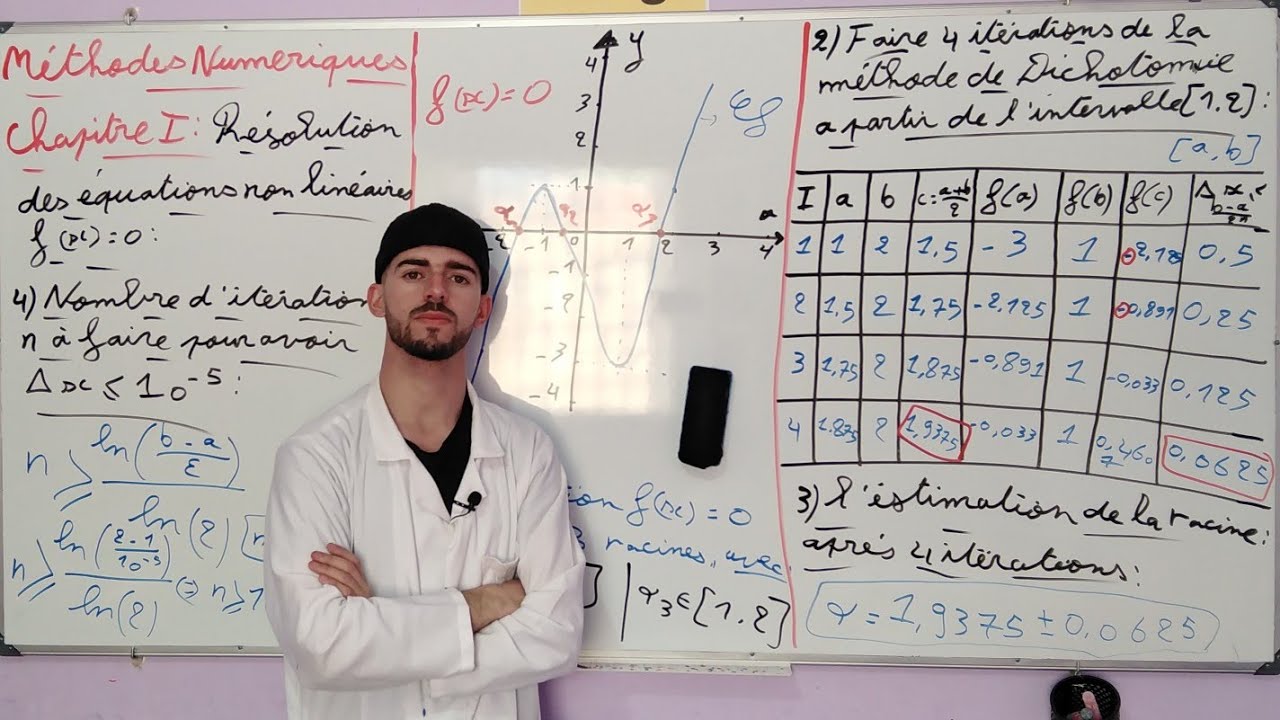 Méthodes Numeriques
Chapitre I: Résolution
des équations non linéaires
f(x)=0:
4) Nombre d'itération
n à faire pour avoir
Δx ≤ 10^-5:
n ≥ ln((b-a)/ε)/ln(2)
n ≥ ln((2-1)/10^-5)/ln(2) ⇔ n ≥ 1
f(x)=0
y
4
3
2
1
α2 α3
-2 -1 0 1 2 3 4 x
-1
-2
-3
-4
Cf
f(x)=0
3 racines, avec
α3 ∈ [1,2]
2) Faire 4 itérations de la
méthode de Dichotomie
a partir de l'intervalle [1.2]:
[a,b]
I a b c=(a+b)/2 f(a) f(b) f(c) Δx (b-a)/2^n
1 1 2 1,5 -3 1 -2,125 0,5
2 1,5 2 1,75 -2,125 1 -0,891 0,25
3 1,75 2 1,875 -0,891 1 -0,033 0,125
4 1.875 2 1,9375 -0,033 1 0,4607 0,0625
3) l'éstimation de la racine:
aprés 4 itérations:
α = 1,9375 ± 0,0625